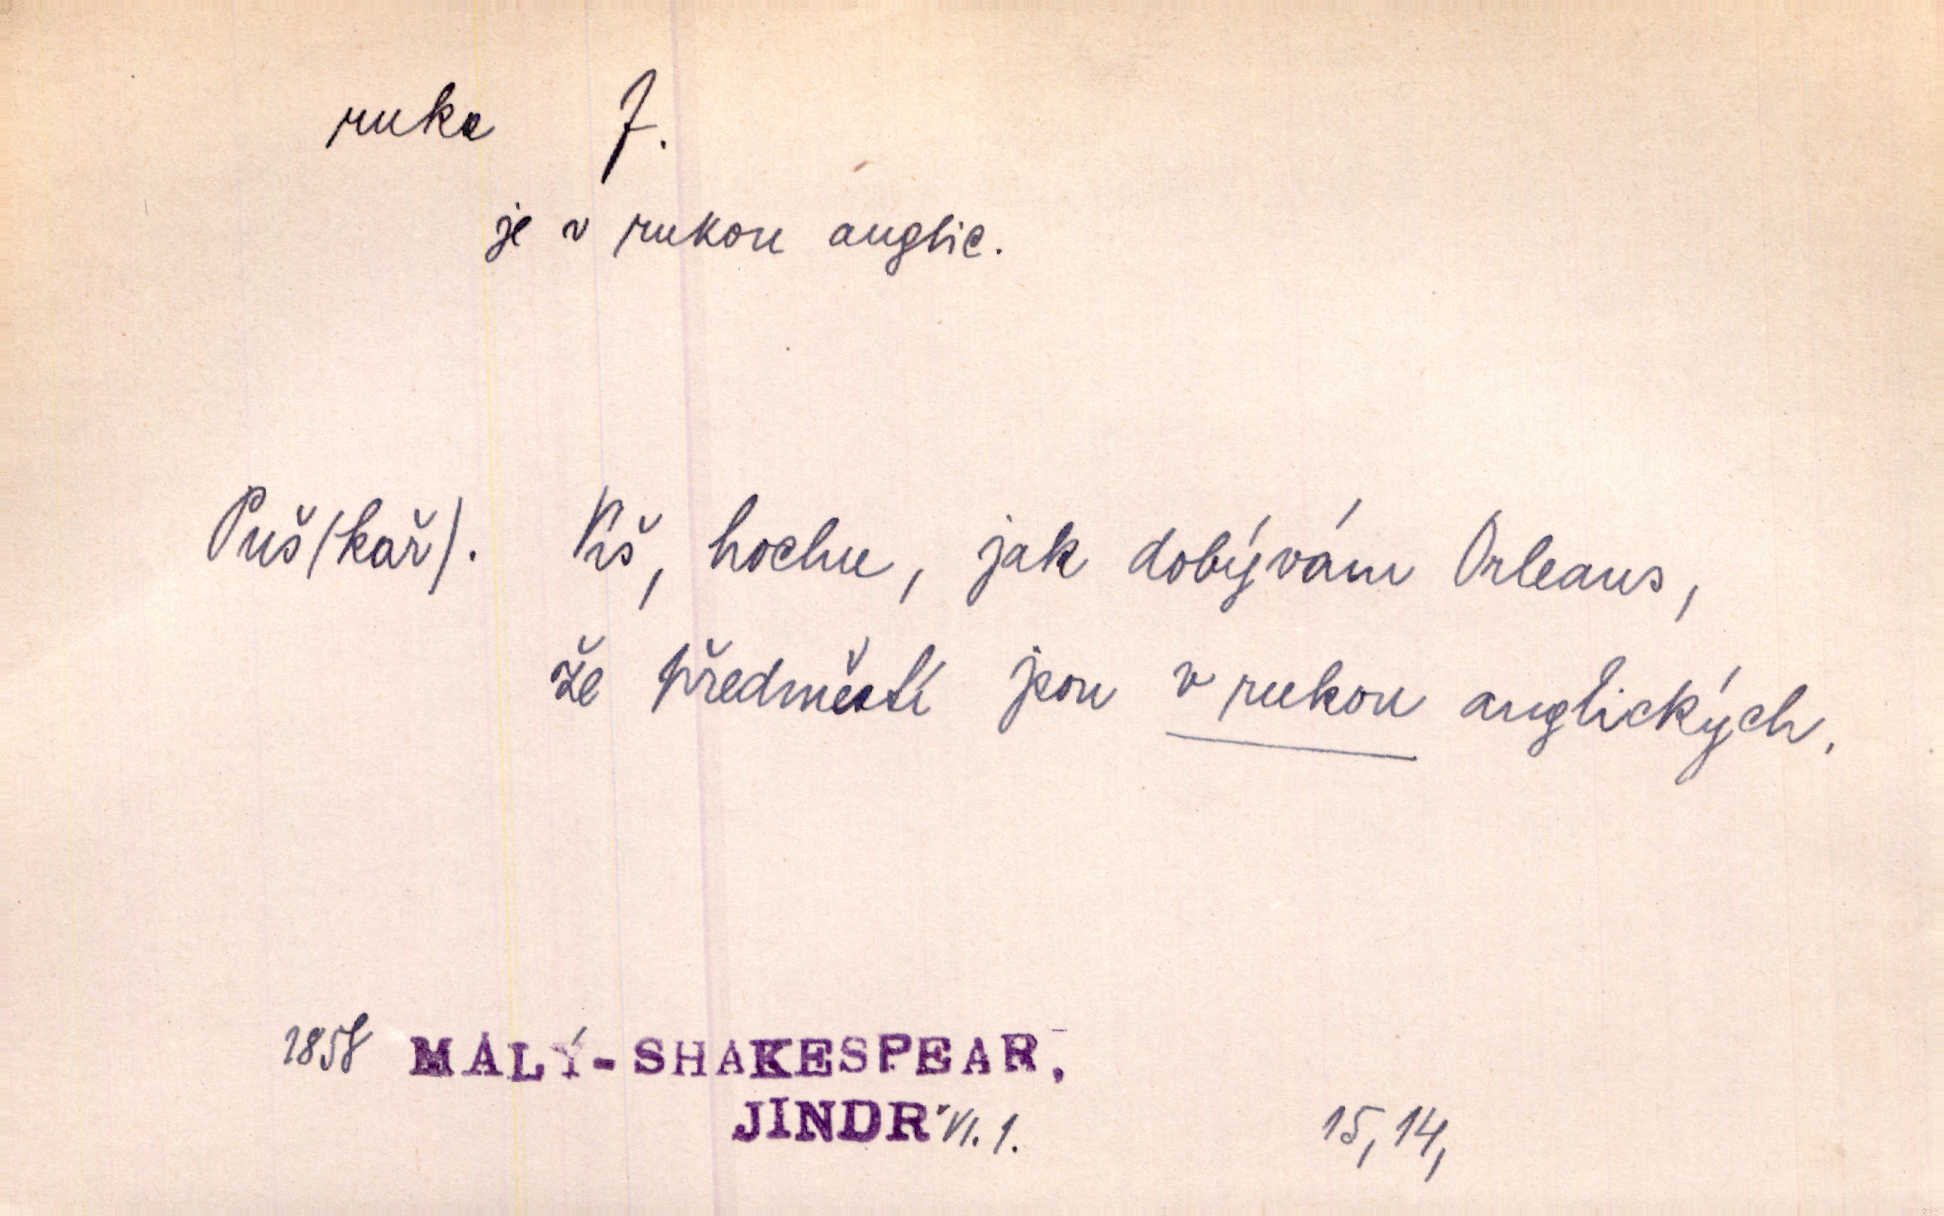 ruka f.
je v rukou anglic.
Puš(kař). Víš, hochu, jak dobývám Orleans,
že předměstí jsou v rukou anglických.
1858 MALÝ-SHAKESPEAR,
JINDR. VI. 1. 15, 14,